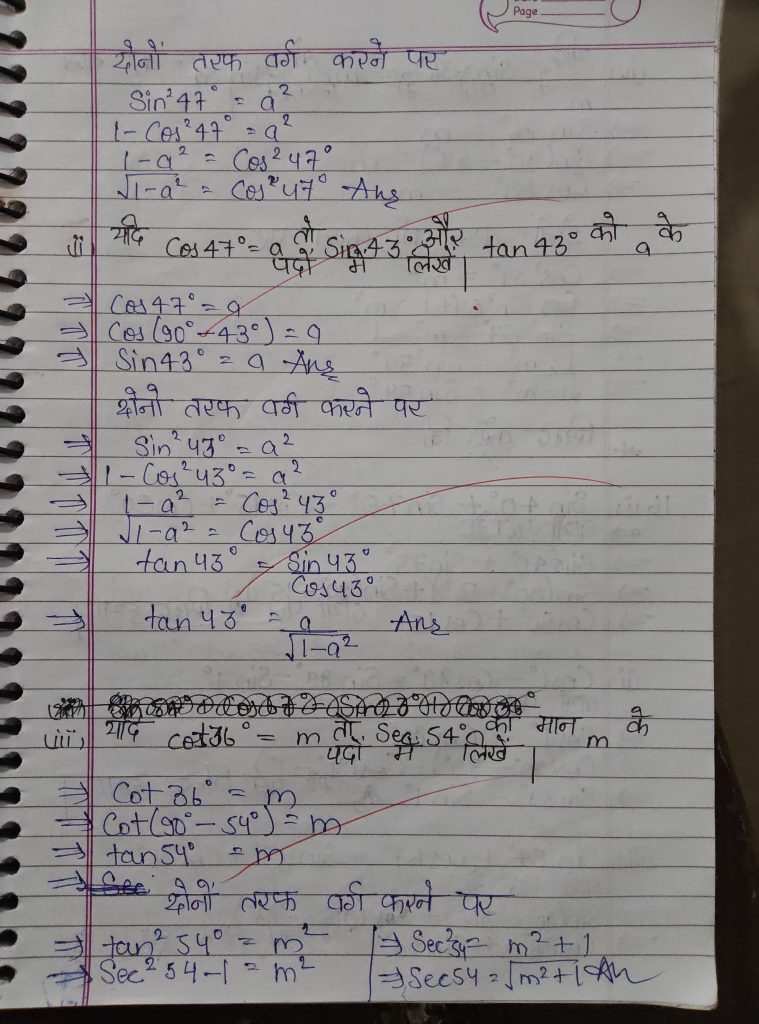 Page
दोनों तरफ वर्ग करने पर
Sin²47° = a²
1 - Cos²47° = a²
1 - a² = Cos²47°
√1-a² = Cos²47° Ans
ii, यदि Cos47° = a तो Sin43° और tan43° को a के
पदों में लिखें|
⇒ Cos47° = a
⇒ Cos(90° - 43°) = a
⇒ Sin43° = a Ans
दोनो तरफ वर्ग करने पर
⇒ Sin²43° = a²
⇒ 1 - Cos²43° = a²
⇒ 1 - a² = Cos²43°
⇒ √1-a² = Cos43°
⇒ tan43° = Sin43°
Cos43°
⇒ tan43° = a Ans
√1-a²
iii, यदि cot36° = m तो Sec54° का मान m के
पदों में लिखें|
⇒ Cot36° = m
⇒ Cot(90° - 54°) = m
⇒ tan54° = m
⇒ Sec
दोनों तरफ वर्ग करने पर
⇒ tan²54° = m²
⇒ Sec²54 - 1 = m²
⇒ Sec²54 = m² + 1
⇒ Sec54 = √m²+1 An